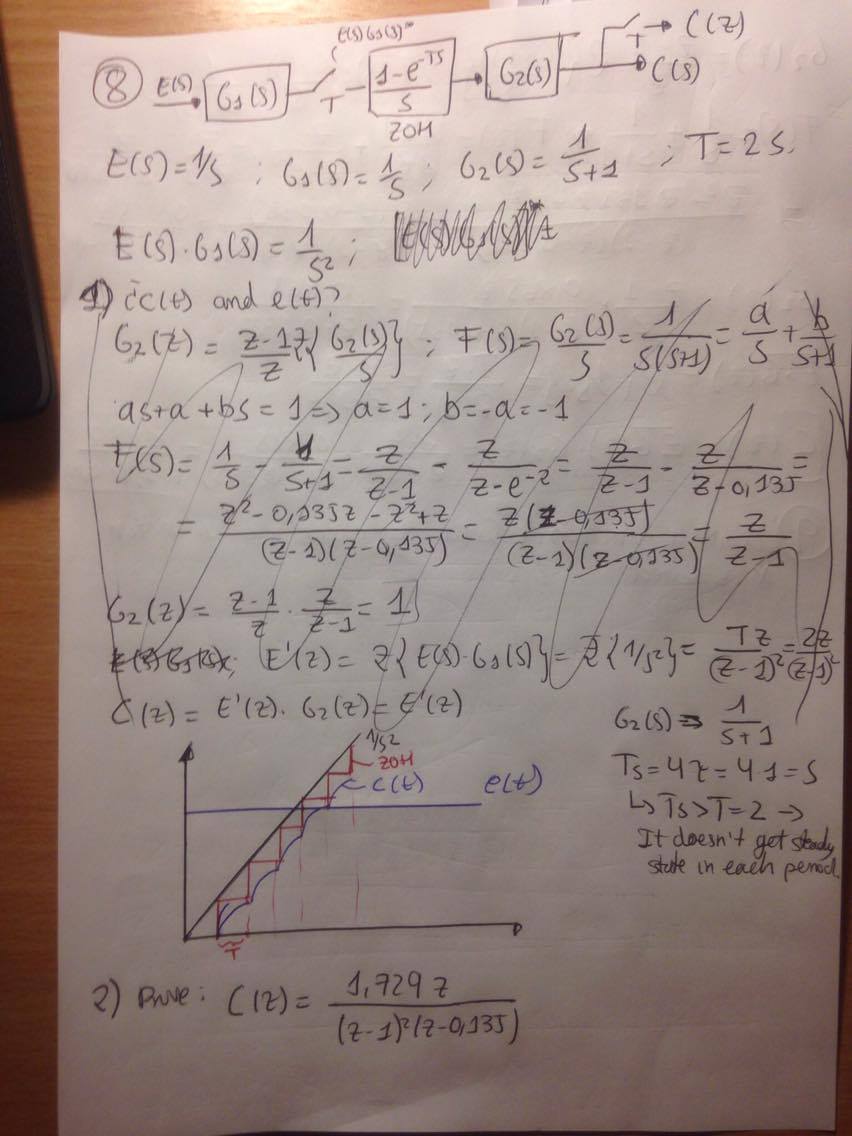 E(s)G1(s)*
8 E(s) G1(s) T 1-e^-TS / S G2(s) T C(z)
ZOH C(s)
E(s) = 1/s ; G1(s) = 1/s ; G2(s) = 1/(s+1) ; T = 2 s.
E(s)·G1(s) = 1/s² ;
1) ¿c(t) and e(t)?
G2(z) = (z-1)/z Z{G2(s)/s} ; F(s) = G2(s)/s = 1/(s(s+1)) = a/s + b/(s+1)
as+a+bs = 1 => a=1 ; b=-a=-1
F(s) = 1/s - 1/(s+1) = z/(z-1) - z/(z-e^-2) = z/(z-1) - z/(z-0,135) =
= (z²-0,135z-z²+z)/((z-1)(z-0,135)) = z(z-0,135)/((z-1)(z-0,135)) = z/(z-1)
G2(z) = (z-1)/z · z/(z-1) = 1
E(s)G1(s); E'(z) = Z{E(s)·G1(s)} = Z{1/s²} = Tz/(z-1)² = 2z/(z-1)²
C(z) = E'(z)·G2(z) = E'(z)
G2(s) => 1/(s+1)
Ts = 4τ = 4·1 = s
↳ Ts > T = 2 →
It doesn't get steady
state in each period.
1/s²
ZOH
c(t)
e(t)
T
2) Prove: C(z) = 1,729 z / ((z-1)²(z-0,135))